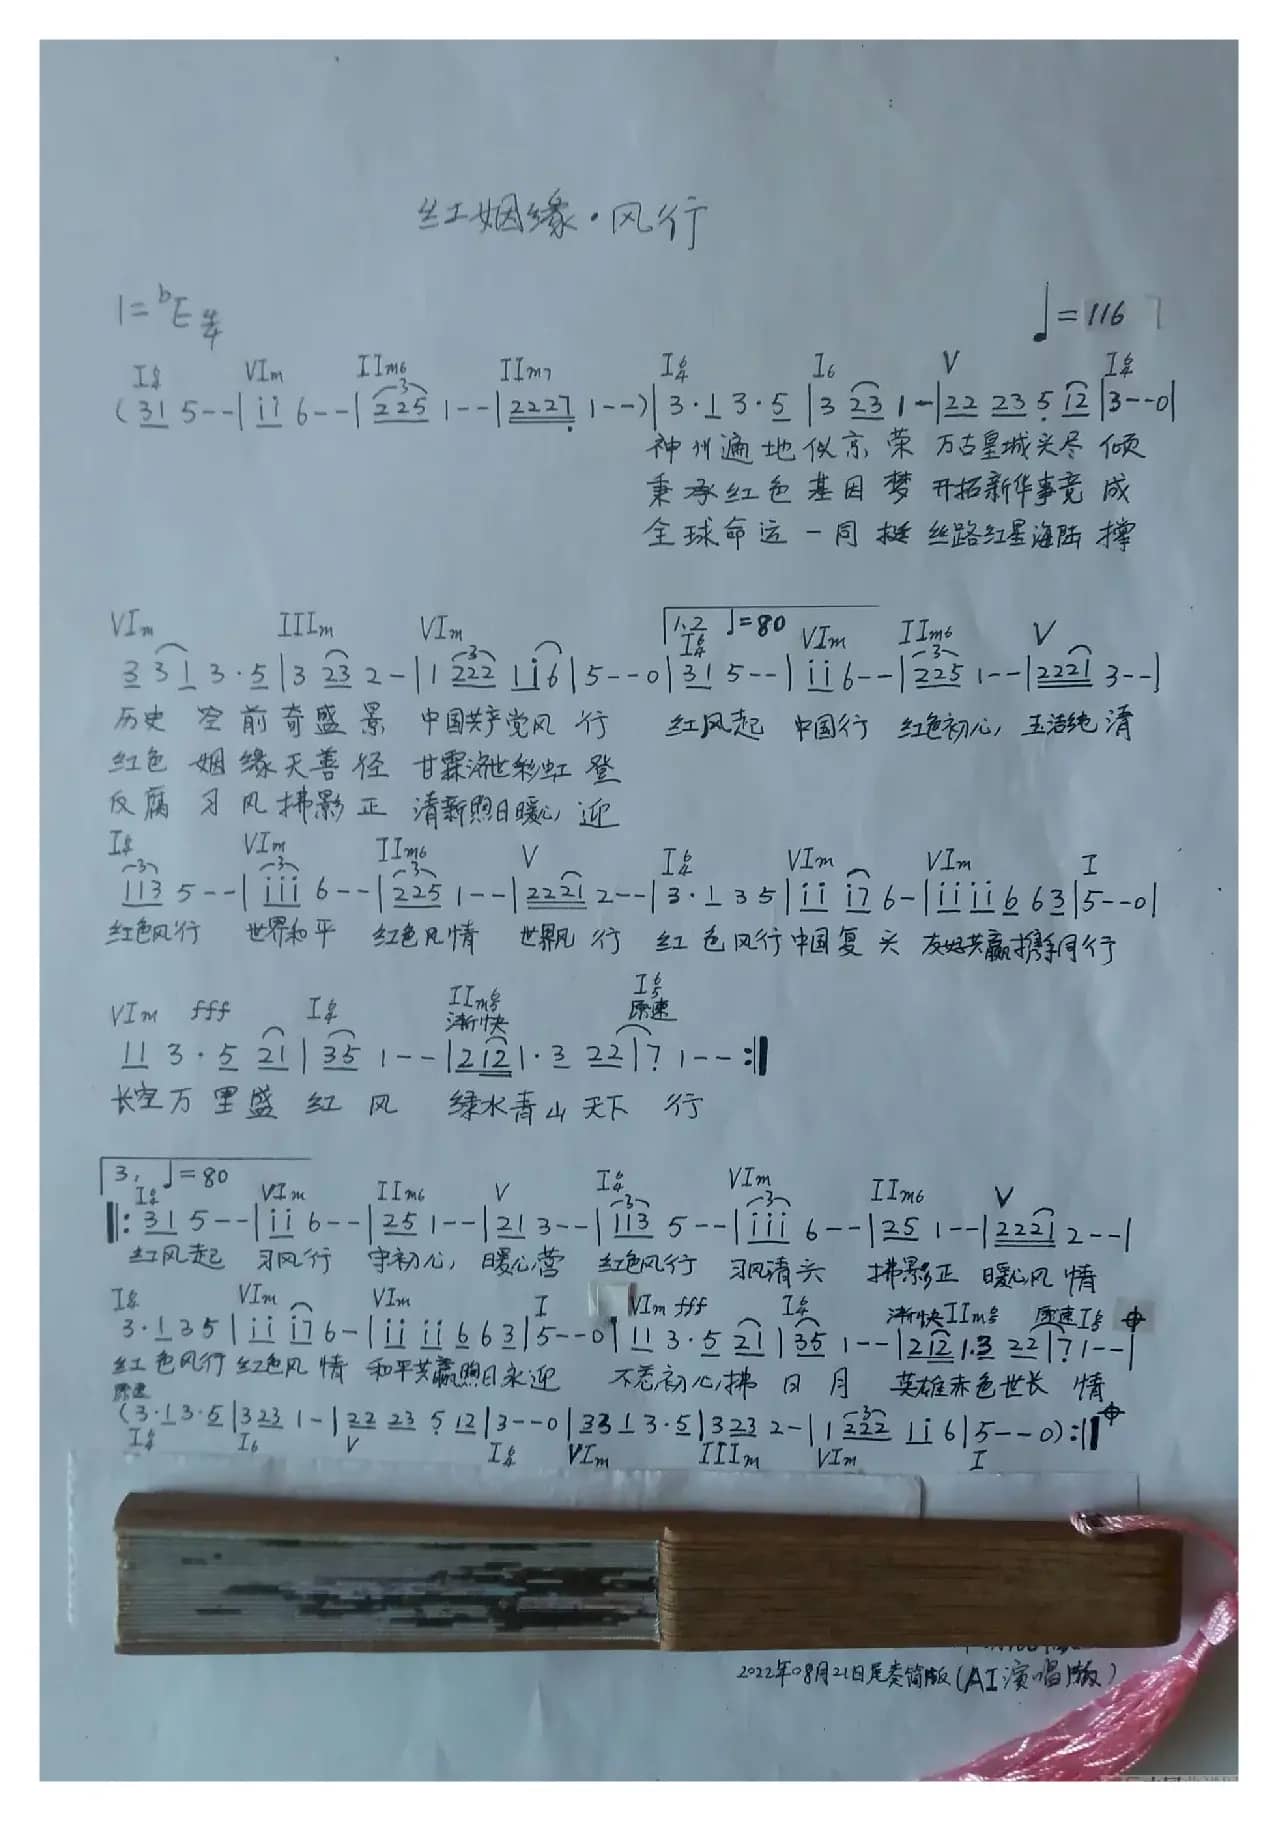 红姻缘·风行
1=bE 4/4 ♩=116
I6/4 VIm IIm6 IIm7 I6/4 I6 V I6/4
(31 5--|ii 6--|225 1--|2227 1--)|3·1 3·5|3 23 1-|22 23 5 12|3--0|
神州遍地似京荣 万古皇城头尽倾
秉承红色基因梦 开拓新华事竟成
全球命运一同挺 丝路红星海陆撑
VIm IIIm VIm 1.2 ♩=80 I6/4 VIm IIm6 V
3 31 3·5|3 23 2-|1 222 1i6|5---0|31 5--|ii 6--|225 1--|2221 3--|
历史空前奇盛景 中国共产党风行 红风起 中国行 红色初心 玉洁纯清
红色姻缘天善径 甘霖洒世彩虹登
反腐习风拂影正 清新煦日暖心迎
I6/4 VIm IIm6 V I6/4 VIm VIm I
113 5--|iii 6--|225 1--|2221 2--|3·1 35|ii i7 6-|ii ii 6 63|5--0|
红色风行 世界和平 红色风情 世界风行 红色风行中国复头 友好共赢携手同行
VIm fff I6/4 IIm6/5 渐快 I6/5 原速
11 3·5 21|35 1--|212 1·3 22|7 1--:|
长空万里盛红风 绿水青山天下行
3. ♩=80
I6/4 VIm IIm6 V I6/4 VIm IIm6 V
|:31 5--|ii 6--|25 1--|21 3--|113 5--|iii 6--|25 1--|2221 2--|
红风起 习风行 守初心 暖心营 红色风行 习风清头 拂影正 暖心风情
I6/4 VIm VIm I VIm fff I6/4 渐快 IIm6/5 原速 I6/5 𝄌
3·1 35|ii i7 6-|ii ii 6 63|5--0|11 3·5 21|35 1--|212 1·3 22|7 1--|
红色风行 红色风情 和平共赢煦日永迎 不忘初心拂日月 英雄赤色世长情
原速
(3·1 3·5|323 1-|22 23 5 12|3--0|33 1 3·5|323 2-|1 222 1i 6|5---0):| 𝄌
I6/4 I6 V I6/4 VIm IIIm VIm I
2022年08月21日尾奏简版(AI演唱版)